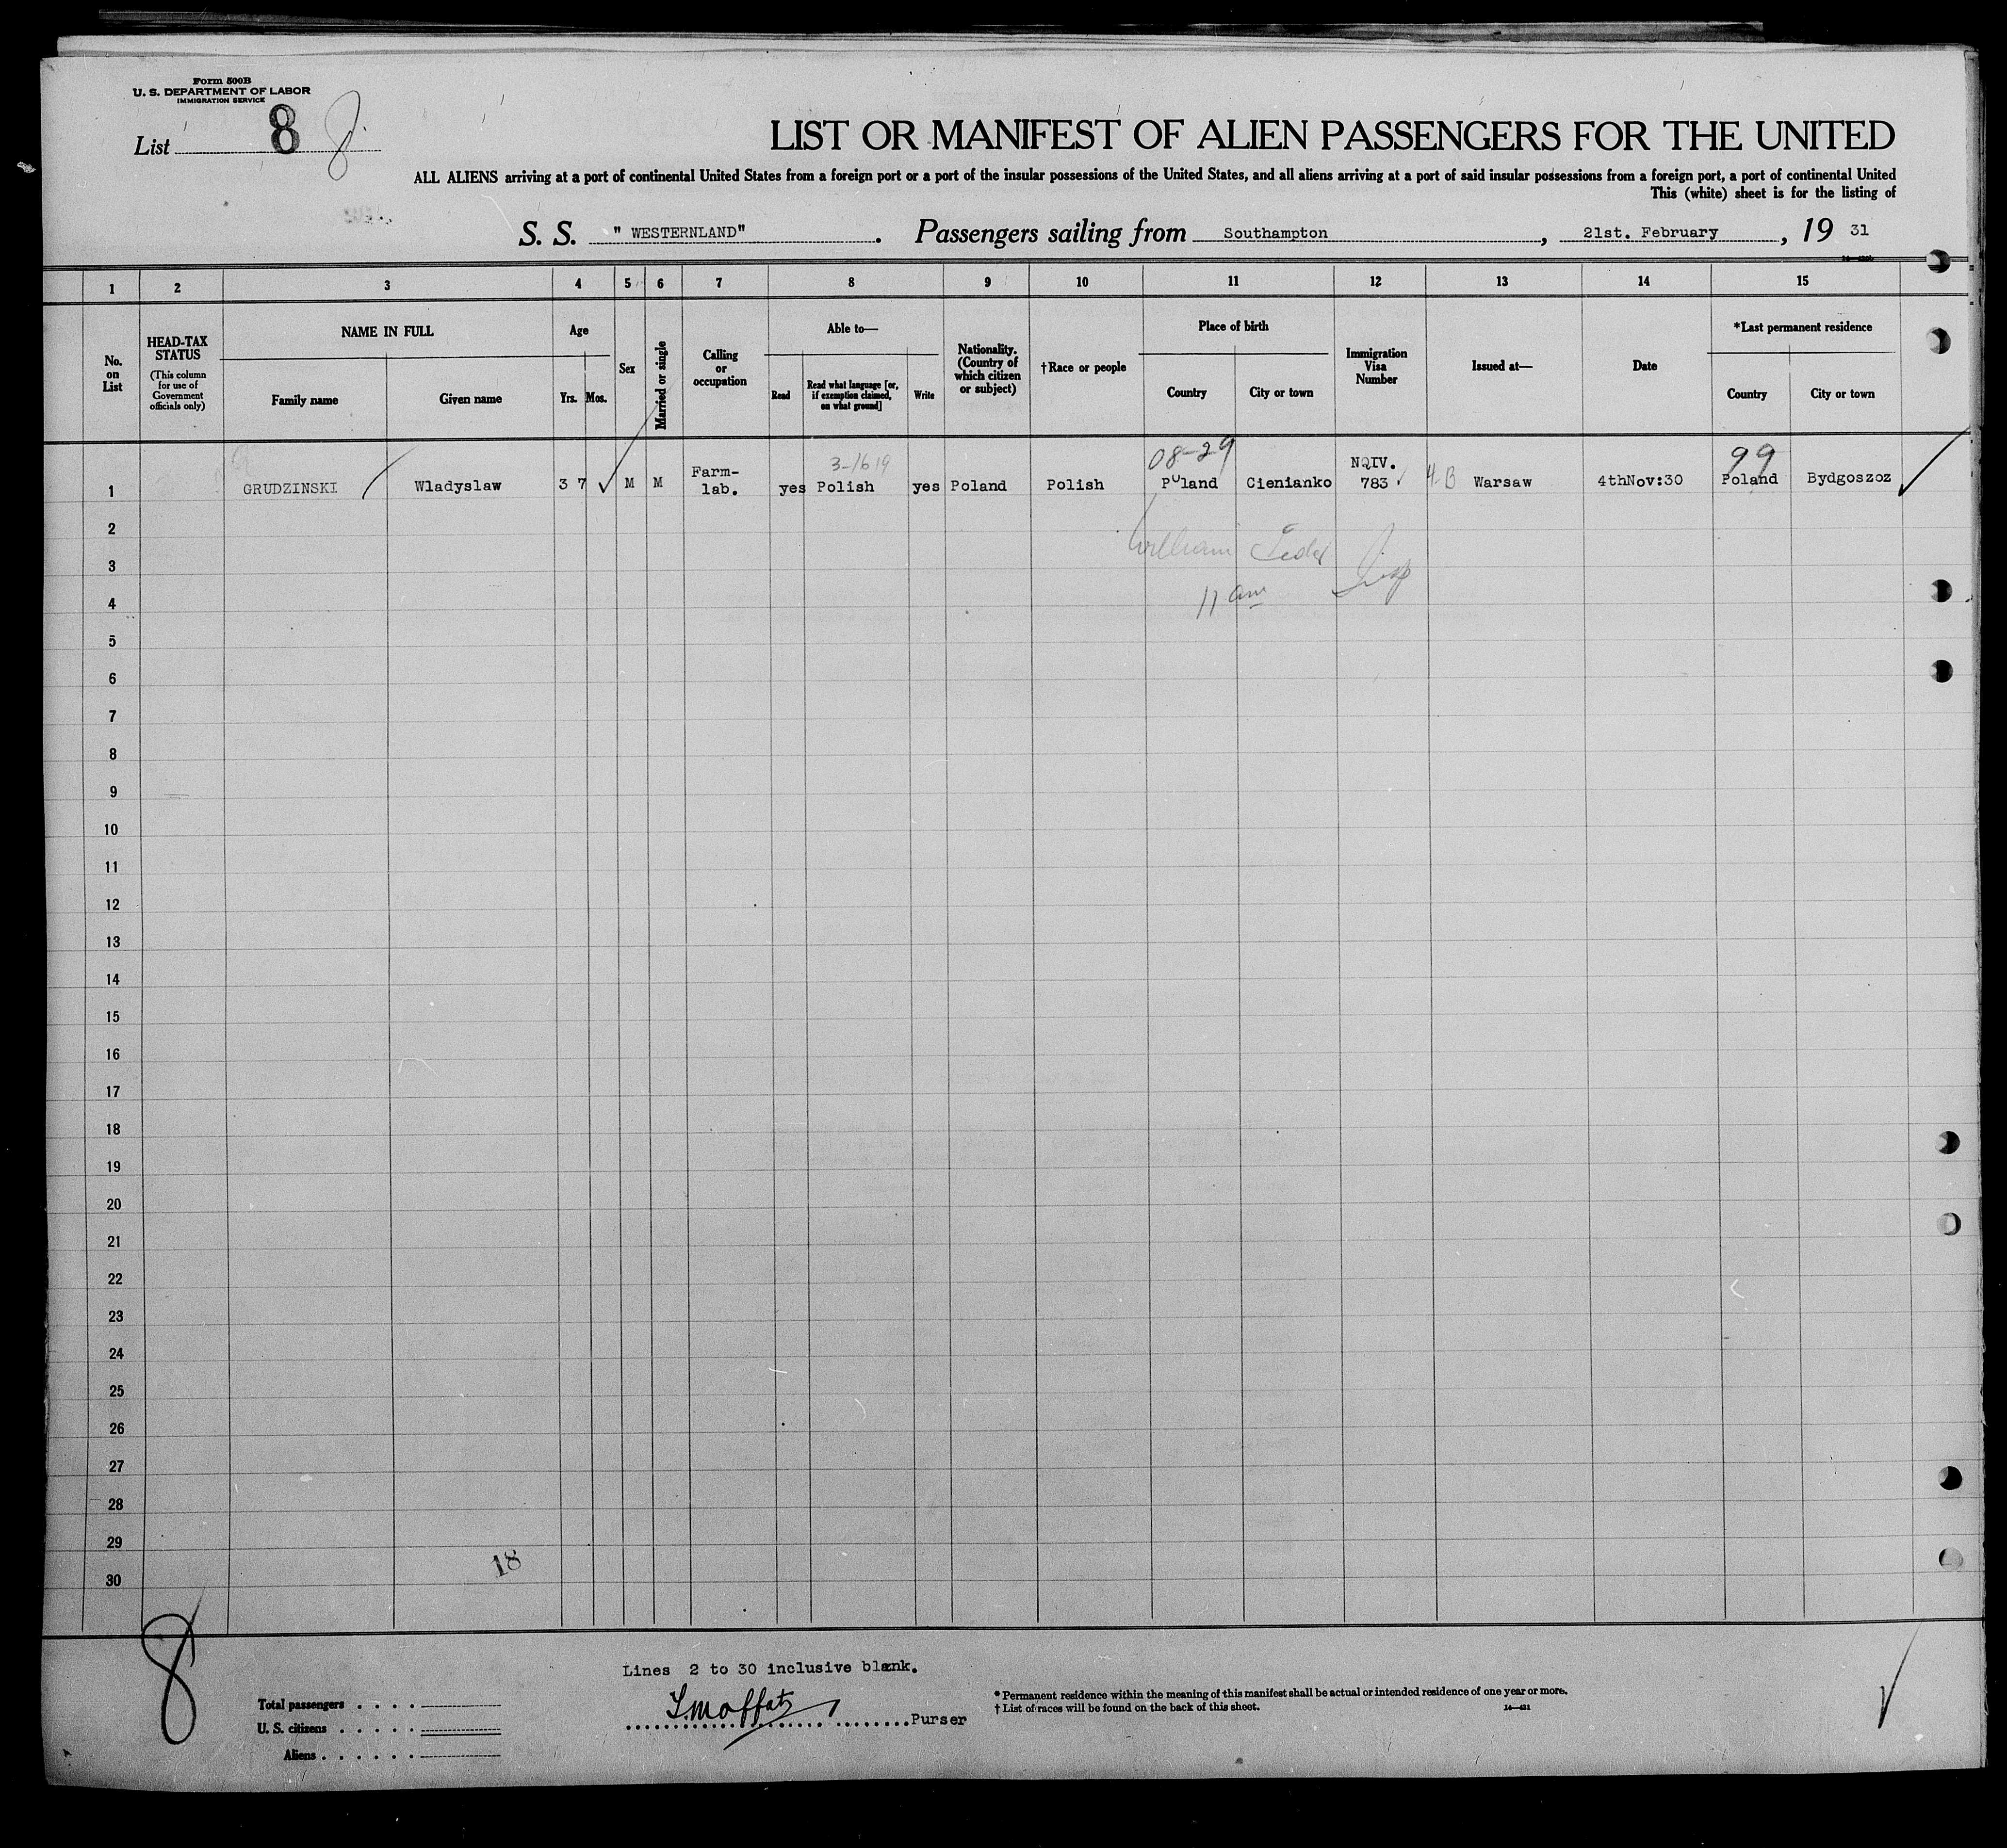 Form 500B
U. S. DEPARTMENT OF LABOR
IMMIGRATION SERVICE
List 8 8
LIST OR MANIFEST OF ALIEN PASSENGERS FOR THE UNITED
ALL ALIENS arriving at a port of continental United States from a foreign port or a port of the insular possessions of the United States, and all aliens arriving at a port of said insular possessions from a foreign port, a port of continental United
This (white) sheet is for the listing of
S. S. " WESTERNLAND". Passengers sailing from Southampton, 21st. February, 19 31
1 2 3 4 5 6 7 8 9 10 11 12 13 14 15
No. on List
HEAD-TAX STATUS
(This column for use of Government officials only)
NAME IN FULL
Family name Given name
Age
Yrs. Mos.
Sex
Married or single
Calling or occupation
Able to—
Read
Read what language [or, if exemption claimed, on what ground]
Write
Nationality. (Country of which citizen or subject)
†Race or people
Place of birth
Country City or town
Immigration Visa Number
Issued at—
Date
*Last permanent residence
Country City or town
3-1619 08-29 99
1 GRUDZINSKI Wladyslaw 3 7 M M Farm-lab. yes Polish yes Poland Polish Poland Cienianko NQIV. 783 4-B Warsaw 4thNov:30 Poland Bydgoszoz
2 William
3
4 11 am
5
6
7
8
9
10
11
12
13
14
15
16
17
18
19
20
21
22
23
24
25
26
27
28
29
18
30
8
Lines 2 to 30 inclusive blank.
Total passengers . . . .
U. S. citizens . . . . .
Aliens . . . . . .
Purser
* Permanent residence within the meaning of this manifest shall be actual or intended residence of one year or more.
† List of races will be found on the back of this sheet.